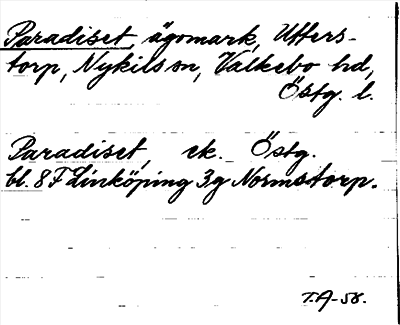 Paradiset, ägomark, Uffers-
torp, Nykils sn, Valkebo hd,
Östg. l.
Paradiset, ek. Östg.
bl. 8F Linköping 3g Normstorp.
T.A-58.